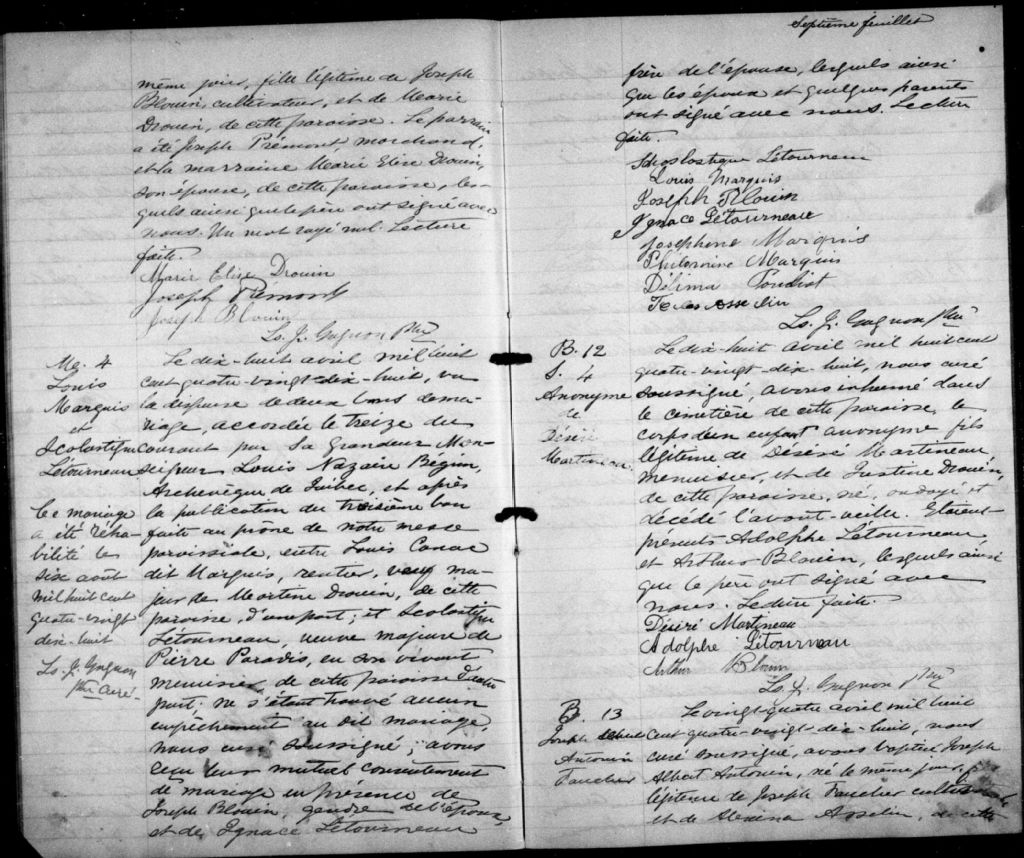 même jour, fille légitime de Joseph
Blouin, cultivateur, et de Marie
Drouin, de cette paroisse. Le parrain
a été Joseph Prémont, marchand,
et la marraine Marie Elise Drouin,
son épouse, de cette paroisse, les-
quels ainsi que le père ont signé avec
nous. Un mot rayé nul. Lecture
faite.
Marie Elise Drouin
Joseph Prémont
Joseph Blouin
Ls. J. Gagnon ptre
Me. 4
Louis
Marquis
et
Scolastique
Létourneau
Ce mariage
a été réha-
bilité le
six août
mil huit cent
quatre-vingt
dix-huit
Ls. J. Gagnon
ptre curé.
Le dix-huit avril mil huit
cent quatre-vingt-dix-huit, vu
la dispense de deux bans de ma-
riage, accordée le treize du
courant par Sa Grandeur Mon-
seigneur Louis Nazaire Bégin,
Archevêque de Québec, et après
la publication du troisième ban
faite au prône de notre messe
paroissiale, entre Louis Canac
dit Marquis, rentier, veuf ma-
jeur de Martine Drouin, de cette
paroisse, d'une part; et Scolastique
Létourneau, veuve majeure de
Pierre Paradis, en son vivant
menuisier, de cette paroisse d'autre
part; ne s'étant trouvé aucun
empêchement au dit mariage,
nous curé soussigné, avons
reçu leur mutuel consentement
de mariage en présence de
Joseph Blouin, gendre de l'époux,
et de Ignace Létourneau
Septième feuillet
frère de l'épouse, lesquels ainsi
que les époux et quelques parents
ont signé avec nous. Lecture
faite.
Scholastique Létourneau
Louis Marquis
Joseph Blouin
Ignace Létourneau
Joséphine Marquis
Philomine Marquis
Délima Pouliot
Asselin
Ls. J. Gagnon ptre
B. 12
S. 4
Anonyme
de
Désiré
Martineau
Le dix-huit avril mil huit cent
quatre-vingt-dix-huit, nous curé
soussigné, avons inhumé dans
le cimetière de cette paroisse, le
corps d'un enfant anonyme fils
légitime de Désiré Martineau,
menuisier, et de Justine Drouin,
de cette paroisse, né, ondoyé et
décédé l'avant-veille. Etaient
présents Adolphe Létourneau,
et Arthur Blouin, lesquels ainsi
que le père ont signé avec
nous. Lecture faite.
Désiré Martineau
Adolphe Létourneau
Arthur Blouin
Ls. J. Gagnon ptre
B. 13
Joseph Albert
Antonin
Faucher
Le vingt quatre avril mil huit
cent quatre-vingt dix-huit, nous
curé soussigné, avons baptisé Joseph
Albert Antonin, né le même jour, fils
légitime de Joseph Faucher cultivateur
et de Alexina Asselin, de cette